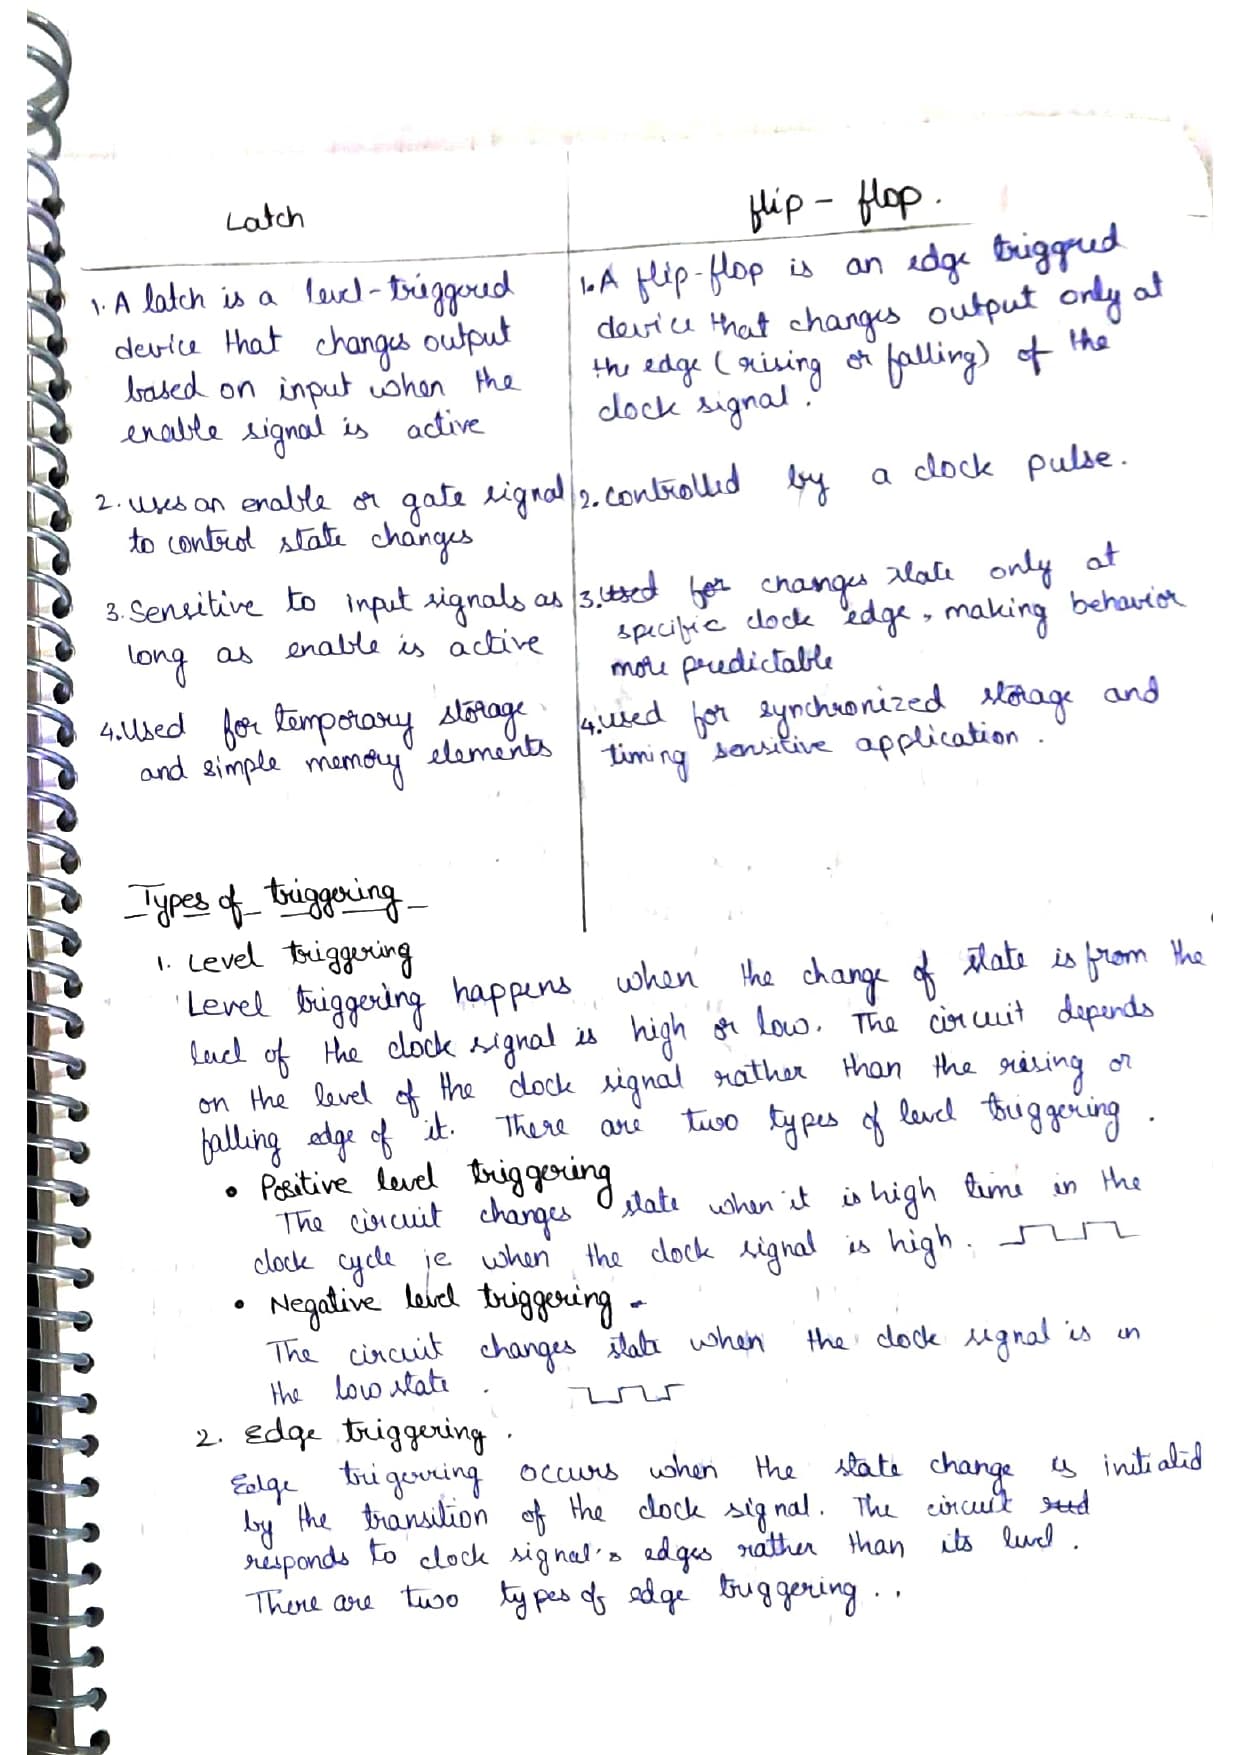 Latch
1. A latch is a level-triggered
device that changes output
based on input when the
enable signal is active
2. uses an enable or gate signal
to control state changes
3. Sensitive to input signals as
long as enable is active
4. Used for temporary storage
and simple memory elements
flip - flop.
1. A flip-flop is an edge triggred
device that changes output only at
the edge (rising or falling) of the
clock signal.
2. controlled by a clock pulse.
3. Used for changes state only at
specific clock edge, making behavior
more predictable
4. used for synchronized storage and
timing sensitive application.
Types of triggering
1. Level triggering
Level triggering happens when the change of state is from the
level of the clock signal is high or low. The circuit depends
on the level of the clock signal rather than the rising or
falling edge of it. There are two types of level triggering.
• Positive level triggering
The circuit changes state when it is high time in the
clock cycle ie when the clock signal is high.
• Negative level triggering -
The circuit changes state when the clock signal is in
the low state.
2. Edge triggering.
Edge trigerring occurs when the state change is initiated
by the transition of the clock signal. The circuit
responds to clock signal's edges rather than its level.
There are two types of edge triggering..